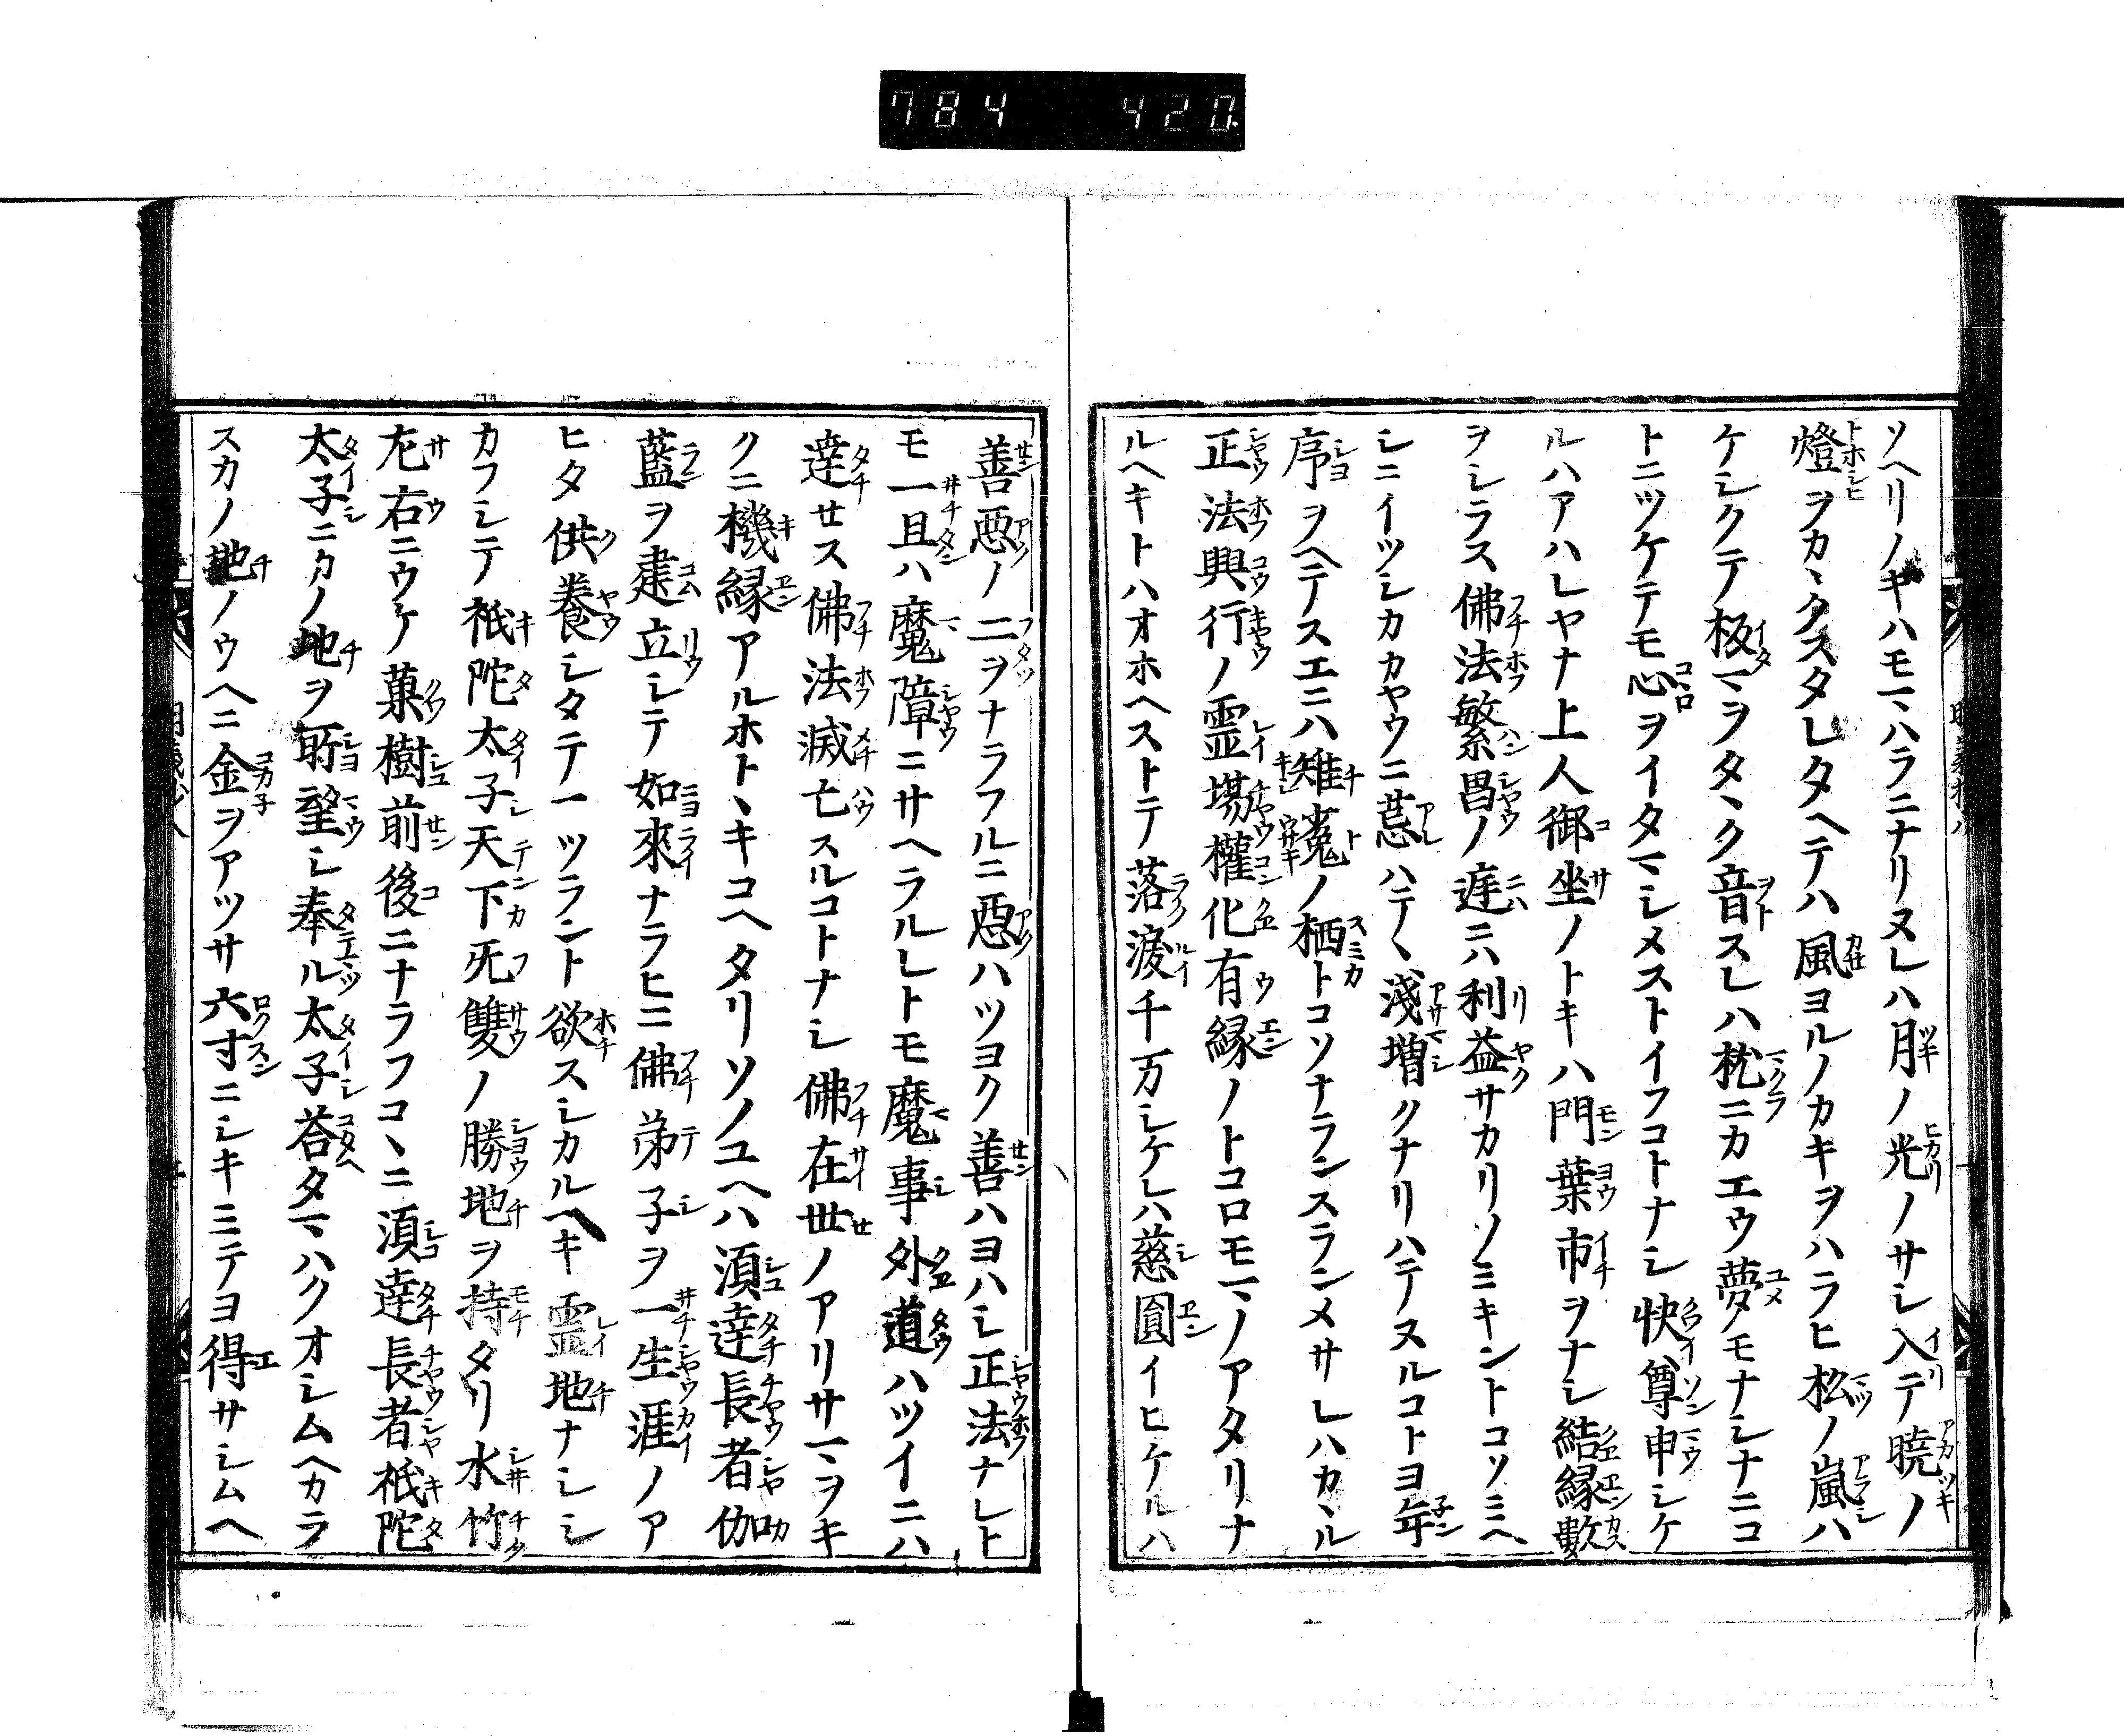 784 420
ソヘリノキハモマハラニナリヌレハ月ノ光ノサシ入テ曉ノ
燈ヲカヽクスタレタヘテハ風ヨルノカキヲハラヒ松ノ嵐ハ
ケシクテ板マヲタヽク音スレハ枕ニカエウ夢タモナシナニコ
トニツケテモ心ヲイタマシメストイフコトナシ快尊申シケ
ルハアハレヤナ上人御坐ノトキハ門葉市ヲナシ結縁數
ヲシラス佛法繁昌ノ庭ニハ利益サカリソミキントコソミヘ
シニイツシカカヤウニ荒ハテヽ淺増クナリハテヌルコトヨ年
序ヲヘテスエニハ雉兎ノ栖トコソナランスランメサレハカヽル
正法興行ノ霊場權化有縁ノトコロモマノアタリナ
ルヘキトハオホヘストテ落涙千万シケレハ慈圓イヒケルハ
善惡ノ二ヲナラフルニ惡ハツヨク善ハヨハシ正法ナレト
モ一旦ハ魔障ニサヘラルレトモ魔事外道ハツイニハ
達セス佛法滅亡スルコトナシ佛在世ノアリサマヲキ
クニ機縁アルホトヽキコヘタリソノユヘハ須達長者伽
藍ヲ建立シテ如來ナラヒニ佛弟子ヲ一生涯ノア
ヒタ供養シタテマツラント欲スシカルヘキ霊地ナシシ
カフシテ祇陀太子天下旡雙ノ勝地ヲ持タリ水竹
左右ニウケ菓樹前後ニナラフコヽニ須達長者祇陀
太子ニカノ地ヲ所望シ奉ル太子荅タマハクオシムヘカラ
スカノ地ノウヘニ金ヲアツサ六寸ニシキミテヨ得サシムヘ